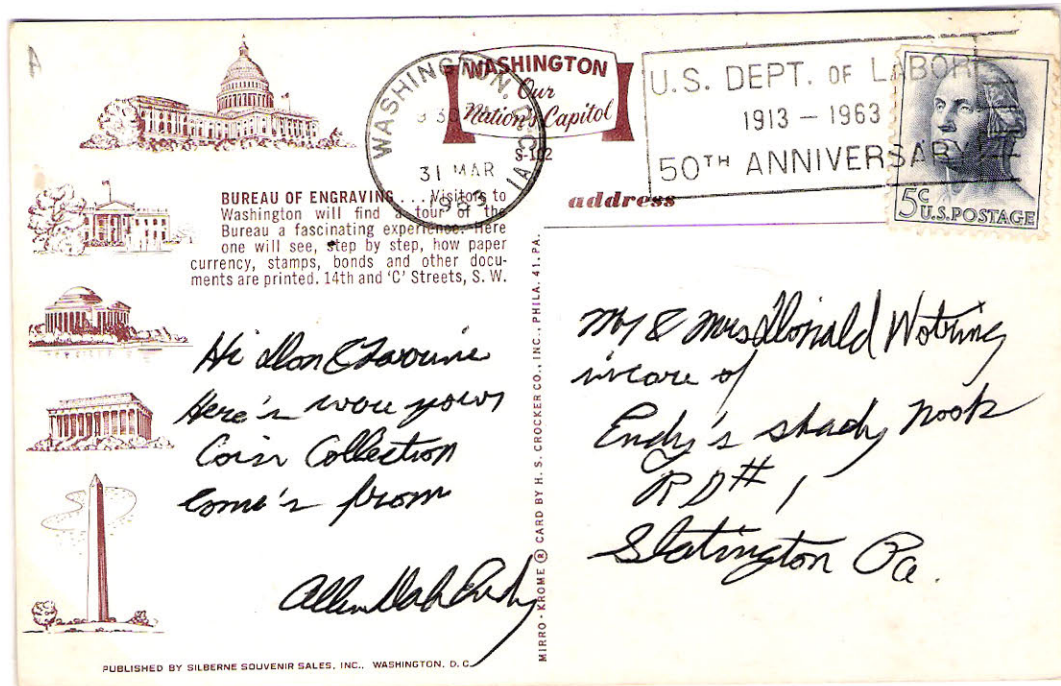 A
WASHINGTON
Our
Nation's Capitol
S-112
WASHINGTON, D.C.
31 MAR
1963
U.S. DEPT. OF LABOR
1913 – 1963
50TH ANNIVERSARY
5c
U.S. POSTAGE
BUREAU OF ENGRAVING . . . Visitors to
Washington will find a tour of the
Bureau a fascinating experience. Here
one will see, step by step, how paper
currency, stamps, bonds and other docu-
ments are printed. 14th and 'C' Streets, S. W.
address
Hi Don &
Here's were your
Coin Collection
Come's from
Allen
Mr & Mrs Donald Wotring
incare of
Endy's shady nook
RD # 1
Slatington Pa.
MIRRO-KROME ® CARD BY H. S. CROCKER CO., INC., PHILA. 41, PA.
PUBLISHED BY SILBERNE SOUVENIR SALES, INC., WASHINGTON, D. C.